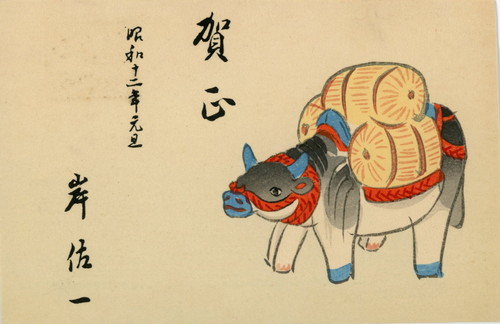 賀正
昭和十二年元旦
岸佐一